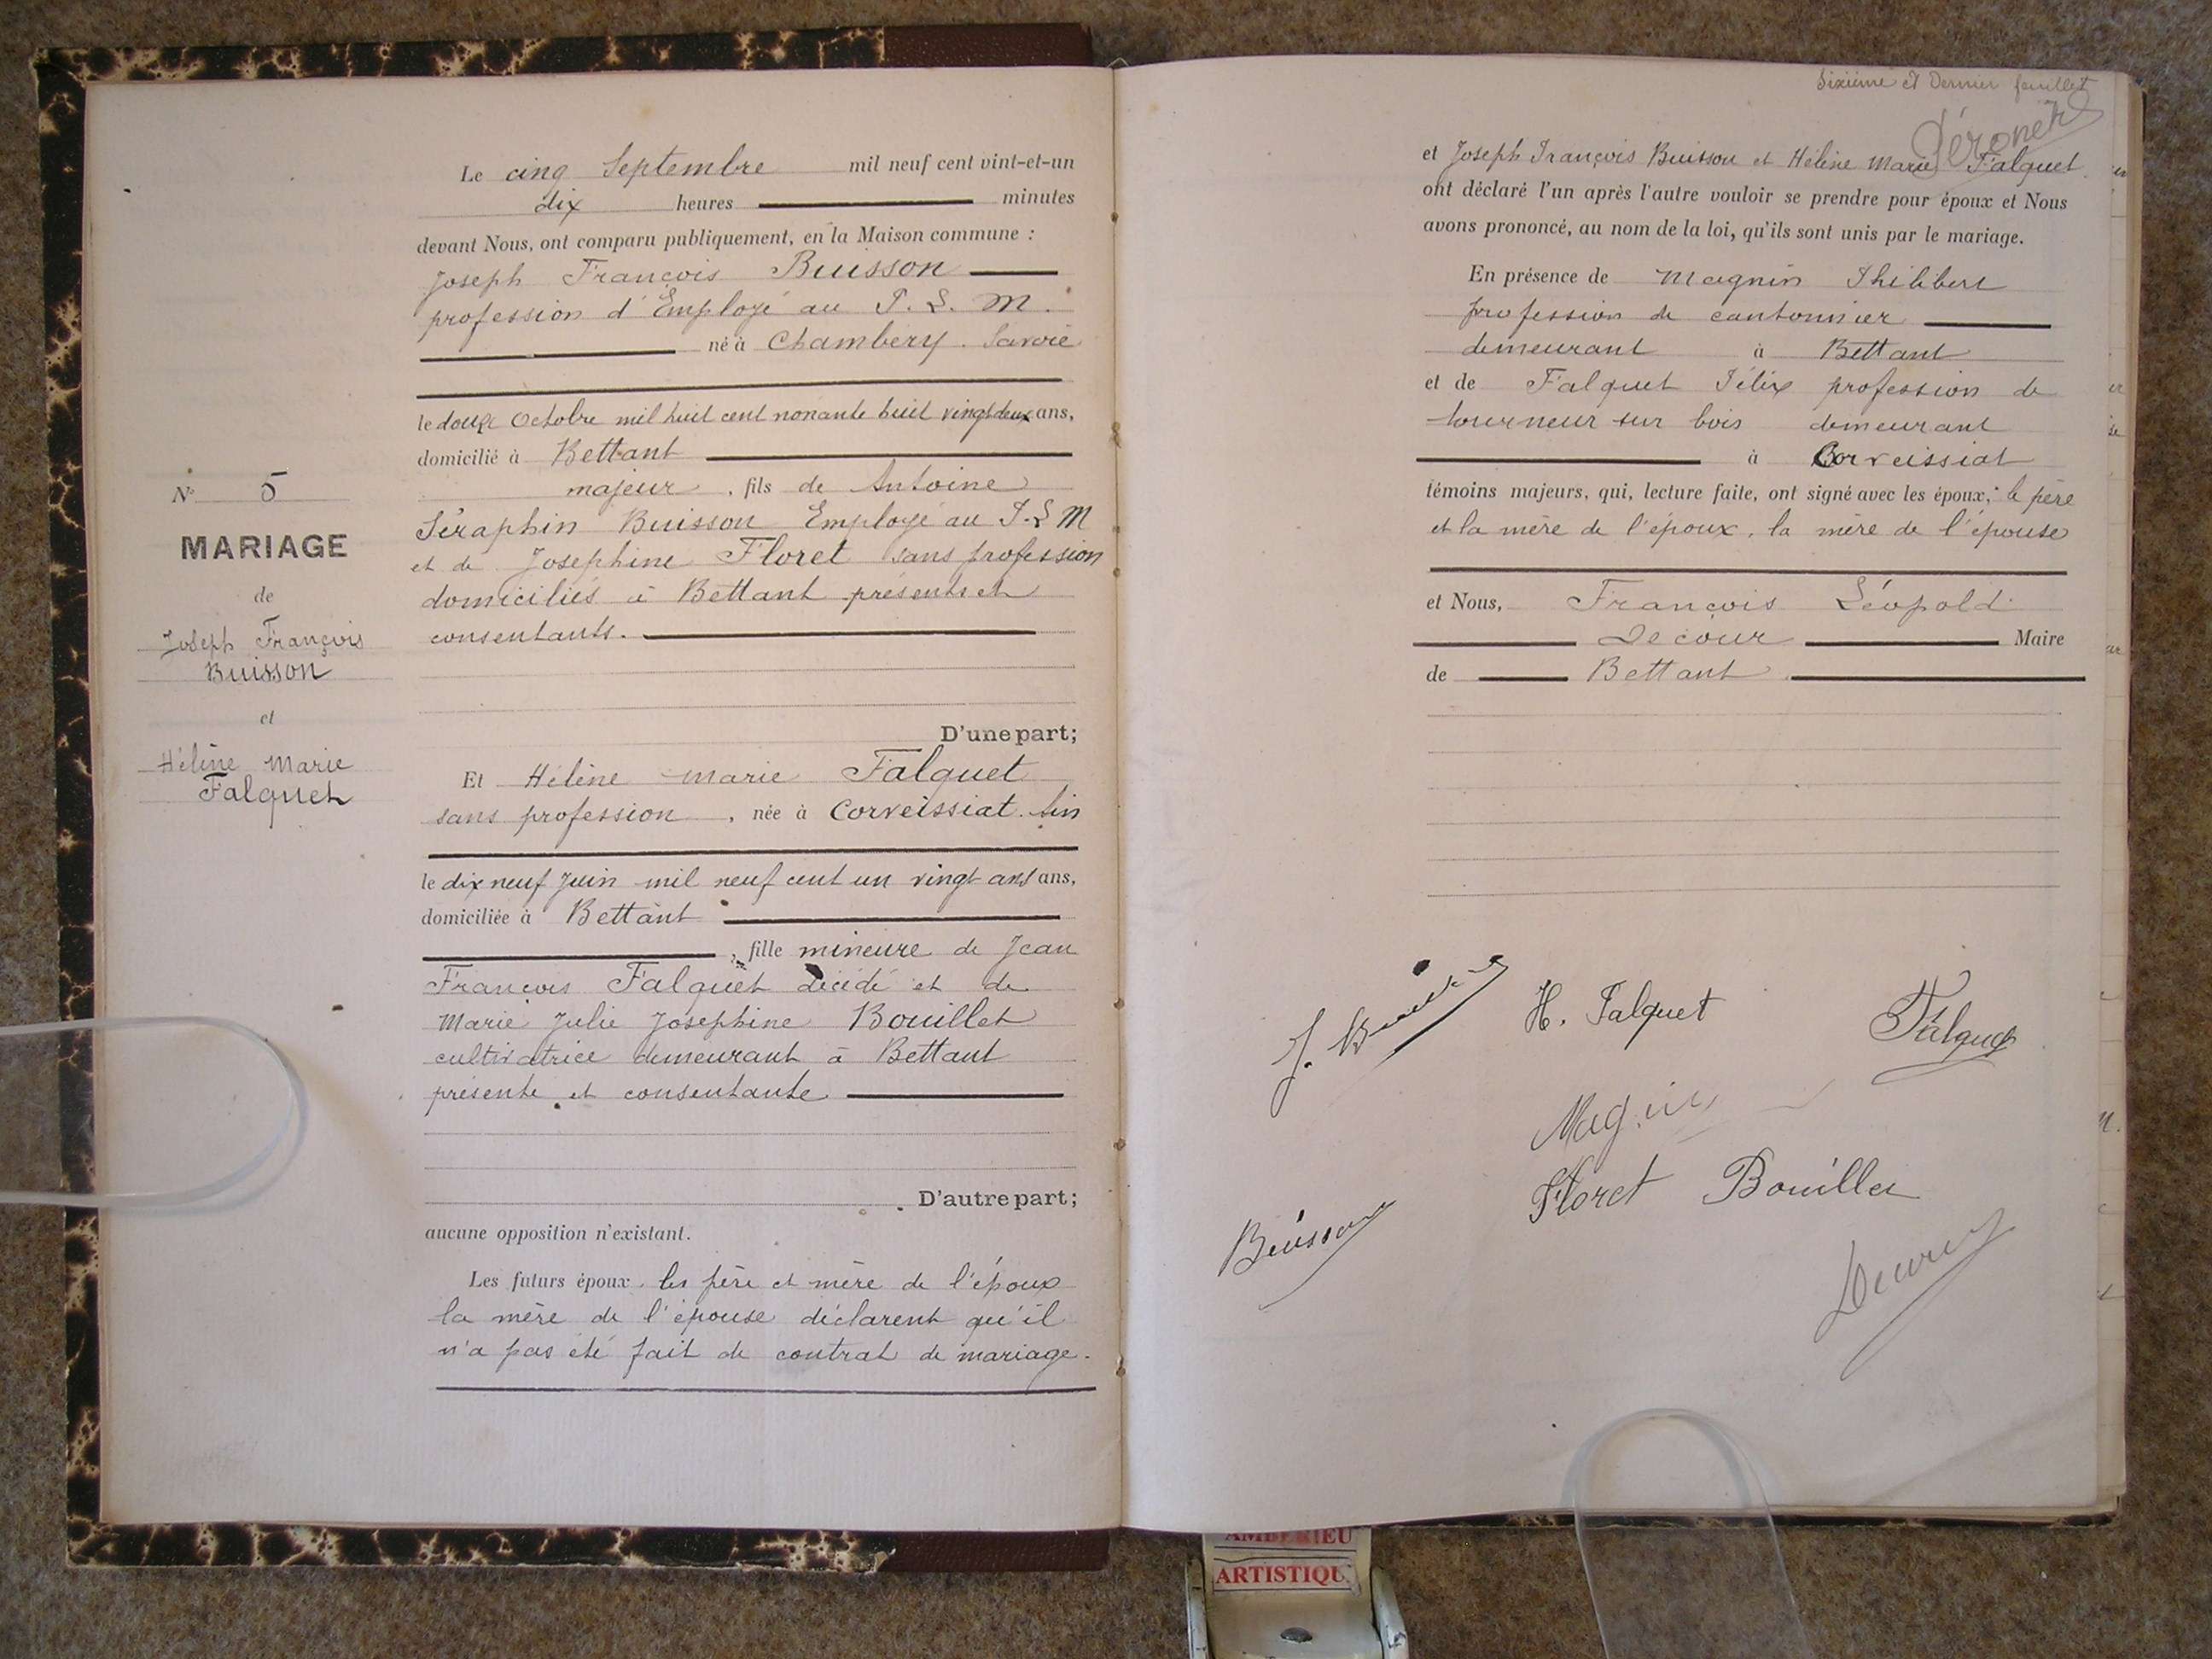 N° 5
MARIAGE
de
Joseph François
Buisson
et
Hélène Marie
Falquet
Le cinq Septembre mil neuf cent vint-et-un
dix heures minutes
devant Nous, ont comparu publiquement, en la Maison commune :
Joseph François Buisson
profession d'Employé au P. L. M.
né à Chambéry. Savoie
le douze Octobre mil huit cent nonante huit vingt deux ans,
domicilié à Bettant
majeur, fils de Antoine
Séraphin Buisson Employé au P. L M
et de Josephine Floret sans profession
domiciliés à Bettant présents et
consentants.
D'une part;
Et Hélène Marie Falquet
sans profession, née à Corveissiat. Ain
le dix neuf Juin mil neuf cent un vingt ans ans,
domiciliée à Bettant
, fille mineure de Jean
François Falquet décédé et de
Marie Julie Josephine Bouillet
cultivatrice demeurant à Bettant
présente et consentante
D'autre part;
aucune opposition n'existant.
Les futurs époux, les père et mère de l'époux
la mère de l'épouse déclarent qu'il
n'a pas été fait de contrat de mariage.
Sixième et Dernier feuillet
et Joseph François Buisson et Hélène Marie Falquet
ont déclaré l'un après l'autre vouloir se prendre pour époux et Nous
avons prononcé, au nom de la loi, qu'ils sont unis par le mariage.
En présence de Magnin Philibert
profession de cantonnier
demeurant à Bettant
et de Falquet Félix profession de
tourneur sur bois demeurant
à Corveissiat
témoins majeurs, qui, lecture faite, ont signé avec les époux, le père
et la mère de l'époux, la mère de l'épouse
et Nous, François Léopold
Decour Maire
de Bettant
J. Buisson
H. Falquet
Falquet
Magnin
Floret Bouillet
Buisson
AMBERIEU
ARTISTIQU